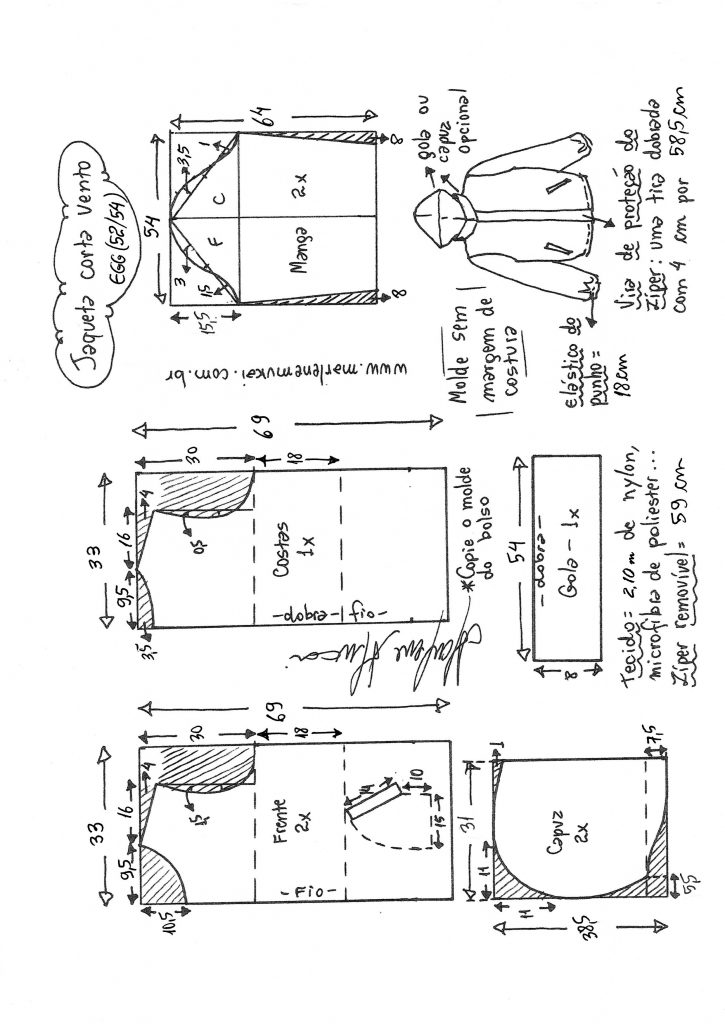 Jaqueta corta vento
EGG (52/54)
33
9,5
16
4
10,5
1,5
30
18
69
Frente
2x
-Fio-
14
10
15
33
9,5
16
4
3,5
0,5
30
18
69
Costas
1x
-fio-
-dobra-
54
64
15,5
3
3,5
1,5
1
F
C
Manga
2x
8
8
www.marlenemukai.com.br
Marlene Mukai
*Copie o molde
do bolso
Molde sem
margem de
costura
gola ou
capuz
opcional
Elástico do
punho =
18 cm
31
11
11
1
7,5
5,5
38,5
Capuz
2x
54
8
-dobra-
Gola - 1x
Tecido = 2,10 m de nylon,
microfibra de poliester...
Zíper removível = 59 cm
Vira de proteção do
Zíper: uma tira dobrada
com 4 cm por 58,5 cm